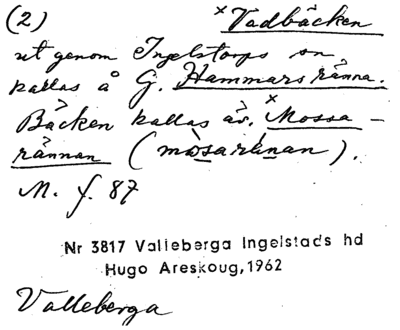 (2) ˣVadbäcken
ut genom Ingelstorps sn
kallas å G. Hammarsränna.
Bäcken kallas äv. ˣMossa-
rännan (måsarænan).
M. f. 87
Nr 3817 Valleberga Ingelstads hd
Hugo Areskoug, 1962
Valleberga